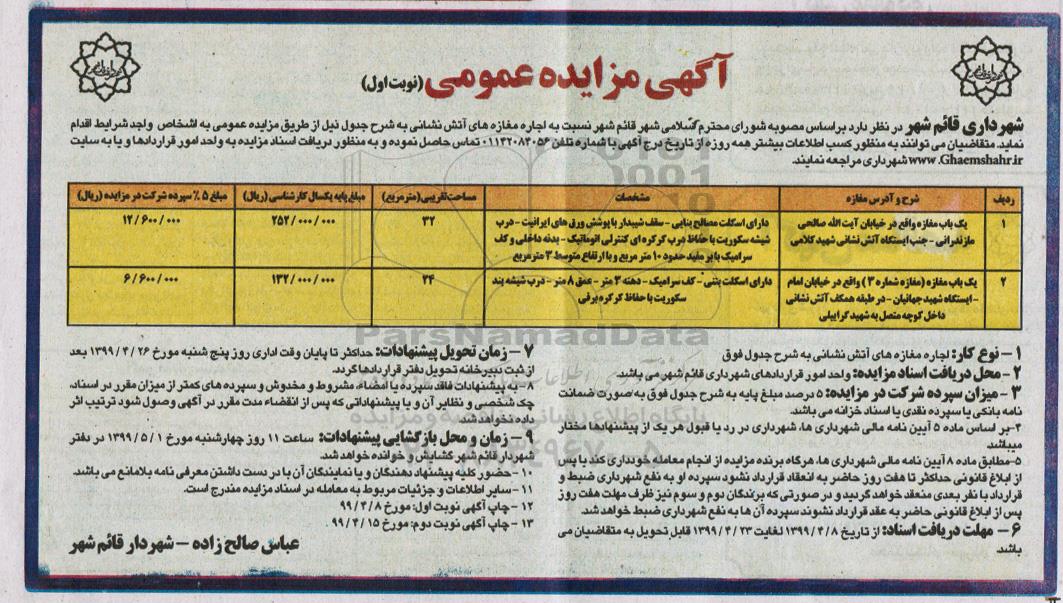 آگهی مزایده عمومی (نوبت اول)
شهرداری قائم شهر در نظر دارد براساس مصوبه شورای محترم اسلامی شهر قائم شهر نسبت به اجاره مغازه های آتش نشانی به شرح جدول ذیل از طریق مزایده عمومی به اشخاص واجد شرایط اقدام
نماید. متقاضیان می توانند به منظور کسب اطلاعات بیشتر همه روزه از تاریخ درج آگهی با شماره تلفن ۰۱۱۴۲۰۸۴۰۵۶ تماس حاصل نموده و به منظور دریافت اسناد مزایده به واحد امور قراردادها و یا به سایت
www.Ghaemshahr.ir شهرداری مراجعه نمایند.
ردیف شرح و آدرس مغازه مشخصات مساحت تقریبی (مترمربع) مبلغ پایه یکسال کارشناسی (ریال) مبلغ ۵٪ سپرده شرکت در مزایده (ریال)
۱ یک باب مغازه واقع در خیابان آیت الله صالحی دارای اسکلت مصالح بنایی - سقف شیبدار با پوشش ورق های ایرانیت - درب ۳۲ ۲۵۲/۰۰۰/۰۰۰ ۱۲/۶۰۰/۰۰۰
مازندرانی - جنب ایستگاه آتش نشانی شهید کلامی شیشه سکوریت با حفاظ درب کرکره ای کنترلی اتوماتیک - بدنه داخلی و کف
سرامیک با بر مفید حدود ۱۰ متر مربع و با ارتفاع متوسط ۳ مترمربع
۲ یک باب مغازه (مغازه شماره ۳) واقع در خیابان امام دارای اسکلت بتنی - کف سرامیک - دهنه ۳ متر - عمق ۸ متر - درب شیشه بند ۲۴ ۱۳۲/۰۰۰/۰۰۰ ۶/۶۰۰/۰۰۰
- ایستگاه شهید جهانیان - در طبقه همکف آتش نشانی سکوریت با حفاظ کرکره برقی
داخل کوچه متصل به شهید گرائیلی
۱ - نوع کار: اجاره مغازه های آتش نشانی به شرح جدول فوق
۲ - محل دریافت اسناد مزایده: واحد امور قراردادهای شهرداری قائم شهر می باشد.
۳ - میزان سپرده شرکت در مزایده: ۵ درصد مبلغ پایه به شرح جدول فوق به صورت ضمانت
نامه بانکی یا سپرده نقدی یا اسناد خزانه می باشد.
۴- بر اساس ماده ۵ آیین نامه مالی شهرداری ها، شهرداری در رد یا قبول هر یک از پیشنهادها مختار
میباشد
۵- مطابق ماده ۸ آیین نامه مالی شهرداری ها، هرگاه برنده مزایده از انجام معامله خودداری کند یا پس
از ابلاغ قانونی حداکثر تا هفت روز حاضر به انعقاد قرارداد نشود سپرده او به نفع شهرداری ضبط و
قرارداد با نفر بعدی منعقد خواهد گردید و در صورتی که برندگان دوم و سوم نیز ظرف مهلت هفت روز
پس از ابلاغ قانونی حاضر به عقد قرارداد نشوند سپرده آن ها به نفع شهرداری ضبط خواهد شد.
۶ - مهلت دریافت اسناد: از تاریخ ۱۳۹۹/۴/۸ لغایت ۱۳۹۹/۴/۲۳ قابل تحویل به متقاضیان می
باشد
۷ - زمان تحویل پیشنهادات: حداکثر تا پایان وقت اداری روز پنج شنبه مورخ ۱۳۹۹/۴/۲۶ بعد
از ثبت دبیرخانه تحویل دفتر قراردادها گردد.
۸- به پیشنهادات فاقد سپرده یا امضاء، مشروط و مخدوش و سپرده های کمتر از میزان مقرر در اسناد،
چک شخصی و نظایر آن و یا پیشنهاداتی که پس از انقضاء مدت مقرر در آگهی وصول شود ترتیب اثر
داده نخواهد شد.
۹ - زمان و محل بازگشایی پیشنهادات: ساعت ۱۱ روز چهارشنبه مورخ ۱۳۹۹/۵/۱ در دفتر
شهردار قائم شهر گشایش و خوانده خواهد شد.
۱۰- حضور کلیه پیشنهاد دهندگان و یا نمایندگان آن با در دست داشتن معرفی نامه بلامانع می باشد.
۱۱- سایر اطلاعات و جزئیات مربوط به معامله در اسناد مزایده مندرج است.
۱۲ - چاپ آگهی نوبت اول: مورخ ۹۹/۴/۸
۱۳ - چاپ آگهی نوبت دوم: مورخ ۹۹/۴/۱۵
عباس صالح زاده - شهردار قائم شهر
ParsNamadData